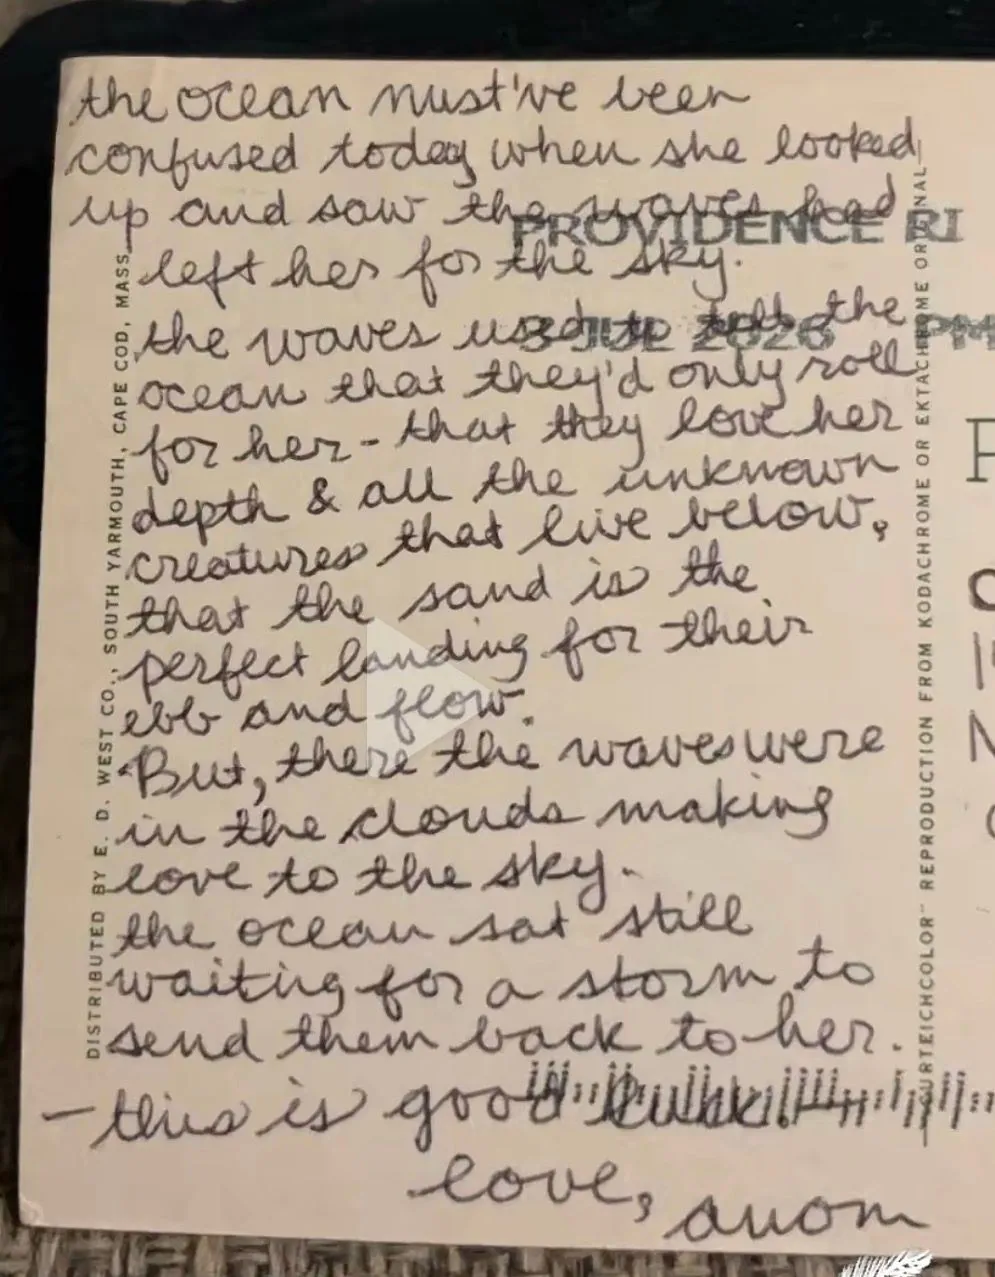 the ocean must've been
confused today when she looked
up and saw the waves had
left her for the sky.
the waves used to tell the
ocean that they'd only roll
for her - that they love her
depth & all the unknown
creatures that live below,
that the sand is the
perfect landing for their
ebb and flow.
But, there the waves were
in the clouds making
love to the sky.
the ocean sat still
waiting for a storm to
send them back to her.
- this is good luck.
love, anom
PROVIDENCE RI
3 JUL 2026 PM
DISTRIBUTED BY E. D. WEST CO., SOUTH YARMOUTH, CAPE COD, MASS.
CURTEICHCOLOR" REPRODUCTION FROM KODACHROME OR EKTACHROME ORIGINAL